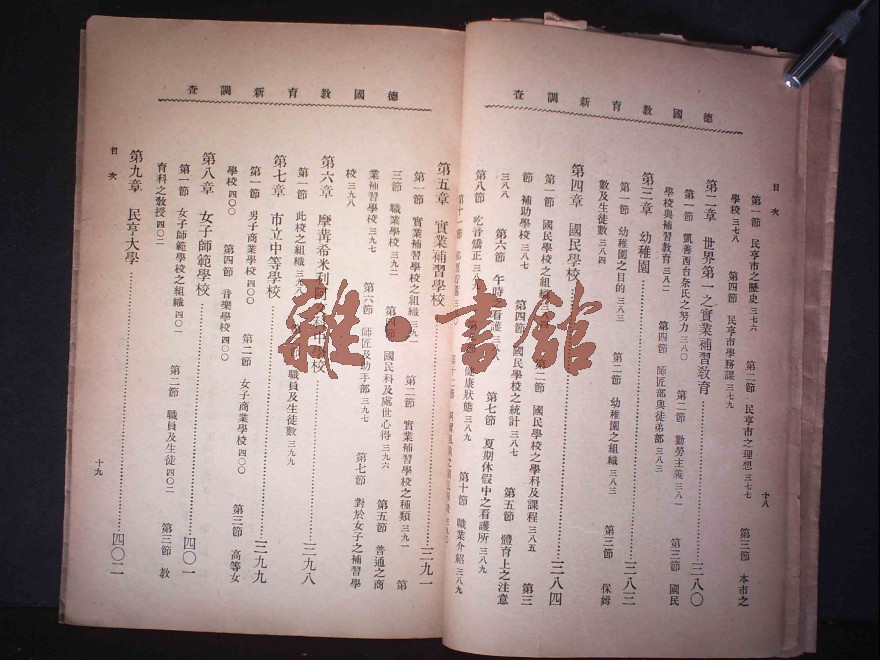 德國教育新調查
目次
十八
第一節 民亨市之歷史三七六 第二節 民亨市之理想三七七 第三節 本市之
學校三七八 第四節 民亨市學務課三七九
第二章 世界第一之實業補習教育 三八〇
第一節 凱善西台奈氏之努力三八〇 第二節 勤勞主義三八一 第三節 國民
學校與補習教育三八二 第四節 師匠部與徒弟部三八三
第三章 幼稚園 三八三
第一節 幼稚園之目的三八三 第二節 幼稚園之組織三八三 第三節 保姆
數及生徒數三八四
第四章 國民學校 三八四
第一節 國民學校之組織 第二節 國民學校之學科及課程三八五 第三
節 補助學校三八七 第四節 國民學校之統計三八七 第五節 體育上之注意
三八八 第六節 午時之看護三八八 第七節 夏期休假中之看護所三八九
第八節 吃音矯正三八九 健康狀態三八九 第十節 職業介紹三八九
第十一節 第十二節
德國教育新調查
第五章 實業補習學校 三九一
第一節 實業補習學校之組織三九一 第二節 實業補習學校之種類三九一 第
三節 職業學校三九二 第四節 國民科及處世心得三九六 第五節 普通之商
業補習學校三九七 第六節 師匠及助手部三九七 第七節 對於女子之補習學
校三九八
第六章 摩冓希米利阿 中學校 三九八
第一節 此校之組織三九八 職員及生徒數三九九
第七章 市立中等學校 三九九
第一節 男子商業學校四〇〇 第二節 女子商業學校四〇〇 第三節 高等女
學校四〇〇 第四節 音樂學校四〇〇
第八章 女子師範學校 四〇一
第一節 女子師範學校之組織四〇一 第二節 職員及生徒四〇二 第三節 教
育科之教授四〇二
第九章 民亨大學 四〇二
目次
十九
雜·書館